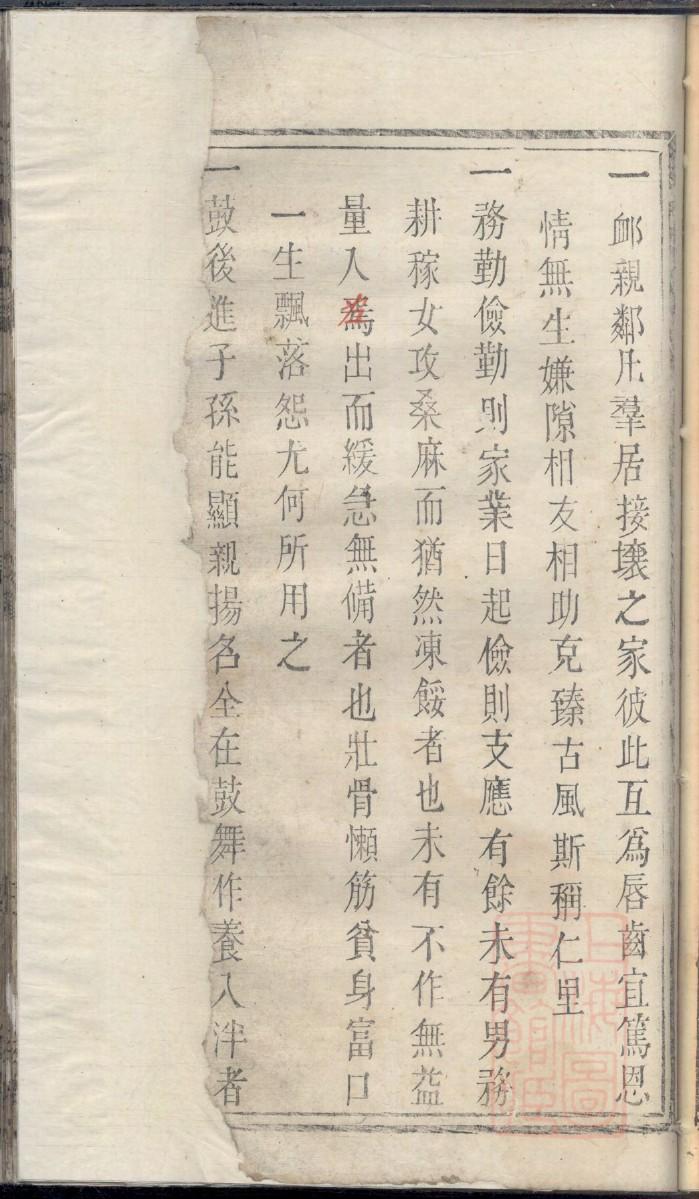 一卹親鄰凡羣居接壤之家彼此互為唇齒宜篤恩
情無生嫌隙相友相助克臻古風斯稱仁里
一務勤儉勤則家業日起儉則支應有餘未有男務
耕稼女攻桑麻而猶然凍餒者也未有不作無益
量入為出而緩急無備者也壯骨懶筋貧身富口
一生飄落怨尤何所用之
一鼓後進子孫能顯親揚名全在鼓舞作養入泮者
上海圖書館藏